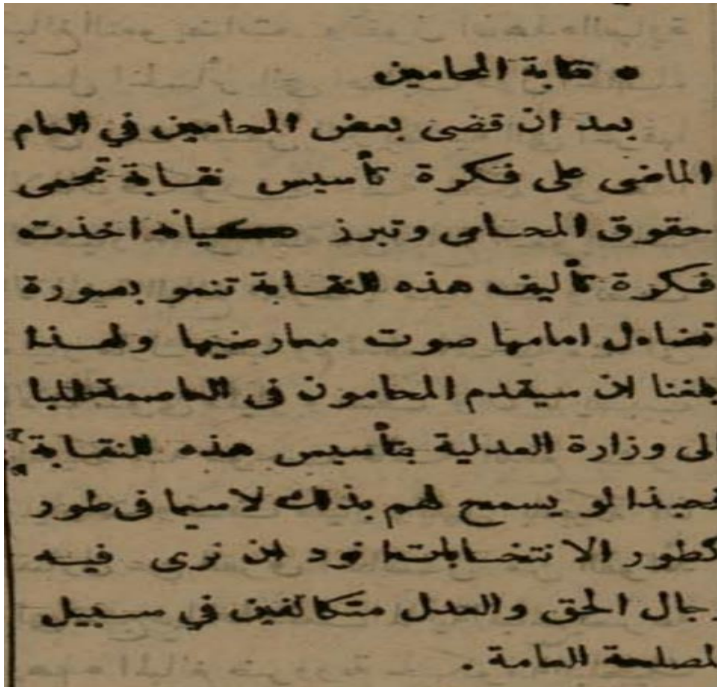 • نقابة المحامين
بعد ان قضى بعض المحامين في العام
الماضى على فكرة تأسيس نقابة تحمى
حقوق المحامى وتبرز كيانه اخذت
فكرة تأليف هذه النقابة تنمو بصورة
تضاءل امامها صوت معارضيها ولهذا
بلغنا ان سيقدم المحامون في العاصمة طلبا
الى وزارة العدلية بتأسيس هذه النقابة
فحبذا لو يسمح لهم بذلك لاسيما فى طور
كطور الانتخابات نود ان نرى فيه
رجال الحق والعدل متكاتفين في سبيل
المصلحة العامة .